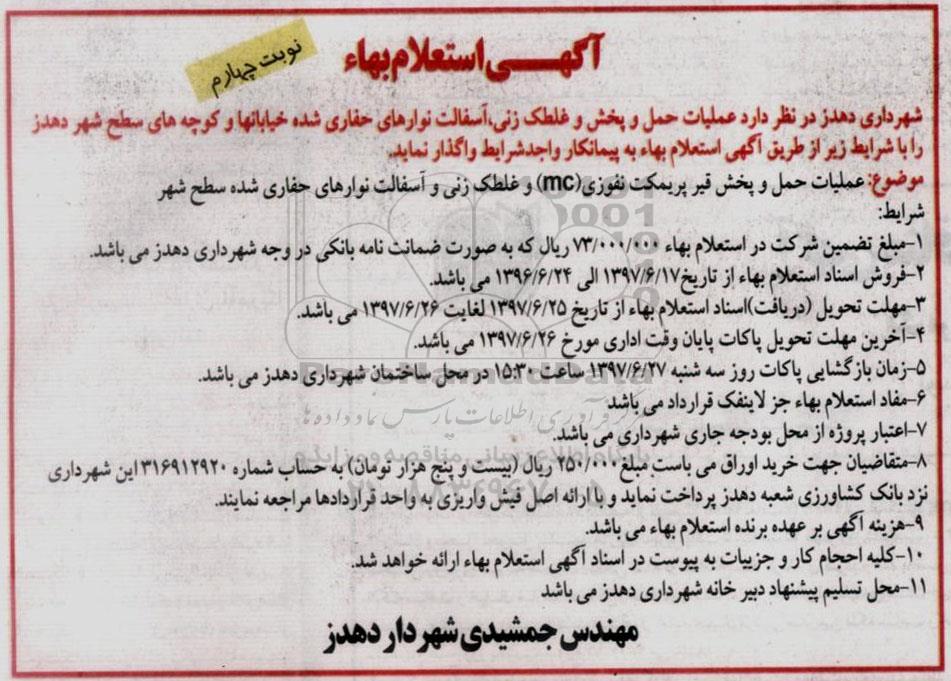 آگهی استعلام بهاء
نوبت چهارم
شهرداری دهدز در نظر دارد عملیات حمل و پخش و غلطک زنی،آسفالت نوارهای حفاری شده خیابانها و کوچه های سطح شهر دهدز
را با شرایط زیر از طریق آگهی استعلام بهاء به پیمانکار واجدشرایط واگذار نماید.
موضوع: عملیات حمل و پخش قیر پریمکت نفوزی(mc) و غلطک زنی و آسفالت نوارهای حفاری شده سطح شهر
شرایط:
۱-مبلغ تضمین شرکت در استعلام بهاء ۷۳/۰۰۰/۰۰۰ ریال که به صورت ضمانت نامه بانکی در وجه شهرداری دهدز می باشد.
۲-فروش اسناد استعلام بهاء از تاریخ۱۳۹۷/۶/۱۷ الی ۱۳۹۶/۶/۲۴ می باشد.
۳-مهلت تحویل (دریافت)اسناد استعلام بهاء از تاریخ ۱۳۹۷/۶/۲۵ لغایت ۱۳۹۷/۶/۲۶ می باشد.
۴-آخرین مهلت تحویل پاکات پایان وقت اداری مورخ ۱۳۹۷/۶/۲۶ می باشد.
۵-زمان بازگشایی پاکات روز سه شنبه ۱۳۹۷/۶/۲۷ ساعت ۱۵:۳۰ در محل ساختمان شهرداری دهدز می باشد.
۶-مفاد استعلام بهاء جز لاینفک قرارداد می باشد
۷-اعتبار پروژه از محل بودجه جاری شهرداری می باشد.
۸-متقاضیان جهت خرید اوراق می باست مبلغ ۲۵۰/۰۰۰ ریال (بیست و پنج هزار تومان) به حساب شماره ۳۱۶۹۱۲۹۲۰ این شهرداری
نزد بانک کشاورزی شعبه دهدز پرداخت نماید و با ارائه اصل فیش واریزی به واحد قراردادها مراجعه نمایند.
۹-هزینه آگهی بر عهده برنده استعلام بهاء می باشد.
۱۰-کلیه احجام کار و جزییات به پیوست در اسناد آگهی استعلام بهاء ارائه خواهد شد.
۱۱-محل تسلیم پیشنهاد دبیر خانه شهرداری دهدز می باشد
مهندس جمشیدی شهردار دهدز
ParsNamadData